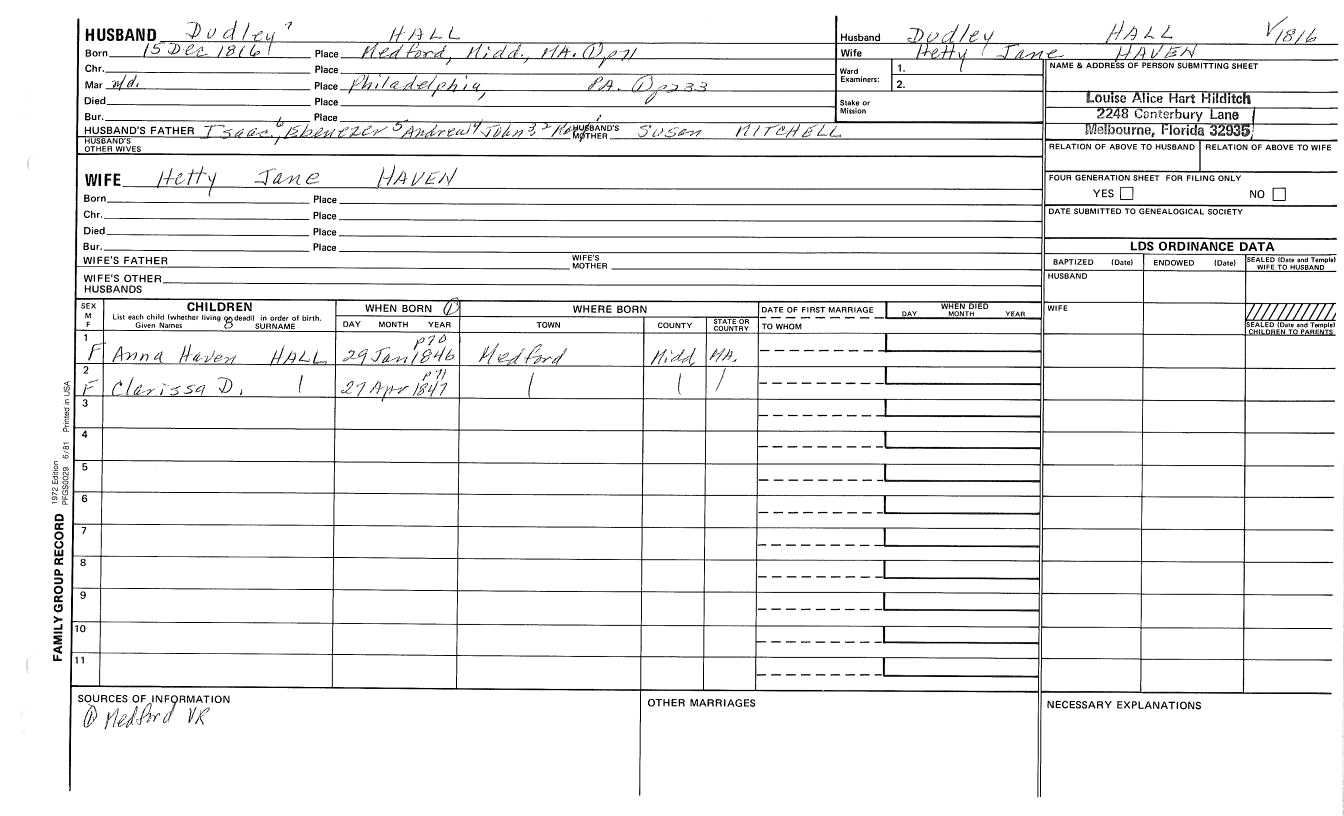 HUSBAND Dudley 7 HALL
Born 15 Dec 1816 Place Medford, Midd., MA. ① p71
Chr. Place
Mar n/d. Place Philadelphia, PA. ① p233
Died Place
Bur. Place
HUSBAND'S FATHER Isaac 6, Ebenezer 5 Andrew 4 John 3, 2 HUSBAND'S MOTHER Susan MITCHELL
HUSBAND'S OTHER WIVES
WIFE Hetty Jane HAVEN
Born Place
Chr. Place
Died Place
Bur. Place
WIFE'S FATHER WIFE'S MOTHER
WIFE'S OTHER HUSBANDS
Husband Dudley HALL V1816
Wife Hetty Jane HAVEN
Ward Examiners: 1.
2.
Stake or Mission
NAME & ADDRESS OF PERSON SUBMITTING SHEET
Louise Alice Hart Hilditch
2248 Canterbury Lane
Melbourne, Florida 32935
RELATION OF ABOVE TO HUSBAND RELATION OF ABOVE TO WIFE
FOUR GENERATION SHEET FOR FILING ONLY
YES NO
DATE SUBMITTED TO GENEALOGICAL SOCIETY
LDS ORDINANCE DATA
BAPTIZED (Date) ENDOWED (Date) SEALED (Date and Temple) WIFE TO HUSBAND
HUSBAND
WIFE
SEALED (Date and Temple) CHILDREN TO PARENTS
SEX M F CHILDREN WHEN BORN ① WHERE BORN DATE OF FIRST MARRIAGE WHEN DIED
List each child (whether living or dead) in order of birth.
Given Names 8 SURNAME DAY MONTH YEAR TOWN COUNTY STATE OR COUNTRY TO WHOM DAY MONTH YEAR
1 p70
F Anna Haven HALL 29 Jan 1846 Medford Midd MA.
2 p71
F Clarissa D. | 27 Apr 1847 | | |
3
4
5
6
7
8
9
10
11
SOURCES OF INFORMATION
① Medford VR
OTHER MARRIAGES
NECESSARY EXPLANATIONS
FAMILY GROUP RECORD 1972 Edition
PFGS0029 6/81 Printed in USA